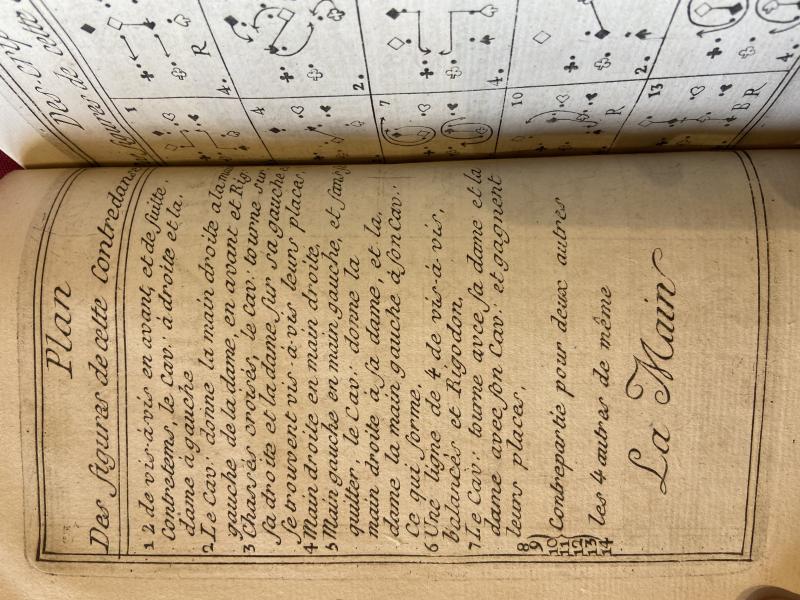 Plan
Des figures de cette Contredanse
1 2 de vis-à-vis en avant, et de suite.
Contretems, le Cav: à droite et la
dame à gauche
2 Le Cav: donne la main droite a la main
gauche de la dame, en avant et Rig
3 Chassés croisés, le Cav: tourne sur
sa droite et la dame sur sa gauche et
se trouvent vis-à-vis leurs places.
4 Main droite en main droite,
5 Main gauche en main gauche, et sans
quitter, le Cav: donne la
main droite à sa dame, et la
dame la main gauche à son Cav:
ce qui forme.
6 Une ligne de 4 de vis-à-vis,
balancés et Rigodon,
7 Le Cav: tourne avec sa dame et la
dame avec son Cav: et gagnent
leurs places,
8
9
10 Contrepartie pour deux autres
11
12
13 les 4 autres de même
14
La Main
1
R
4.
4
2.
7
4.
10
R
2.
13
B R
4.